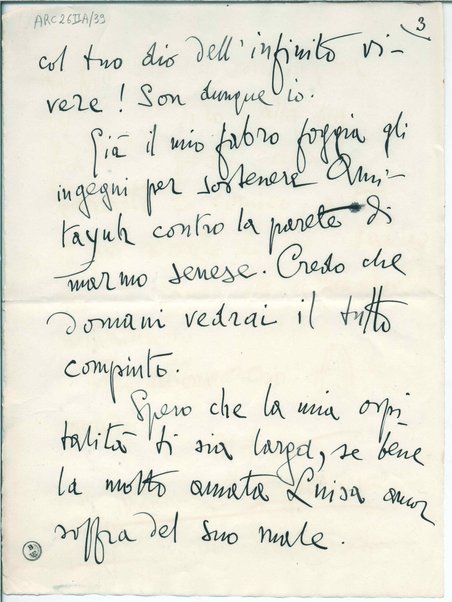 ARC26IIA/39
3
col tuo dio dell'infinito vi-
vere! Son dunque io.
Già il mio fabro foggia gli
ingegni per sostenere Ami-
tayuh contro la parete di
marmo senese. Credo che
domani vedrai il tutto
compiuto.
Spero che la mia ospi
talità ti sia larga, se bene
la molto amata Luisa ancor
soffra del suo male.